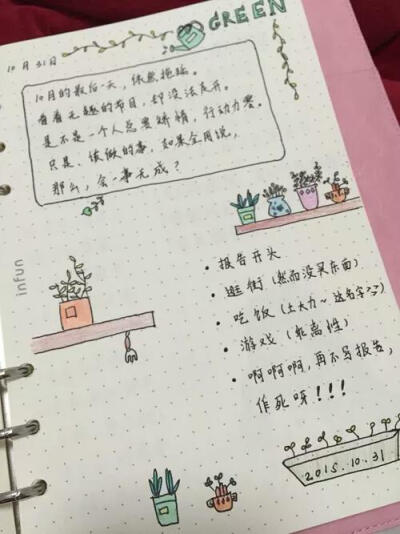 GREEN
10月31日
10月的最后一天，依然拖延。
看着无趣的节目，却没法走开。
是不是一个人总要矫情，行动力要。
只是，该做的事，如果全用说，
那么，会一事无成？
infun
• 报告开头
• 逛街（然而没买东西）
• 吃饭（土大力～达名字？）
• 游戏（乾高性）
• 啊啊啊，再不写报告，
作死呀！！！
2015.10.31